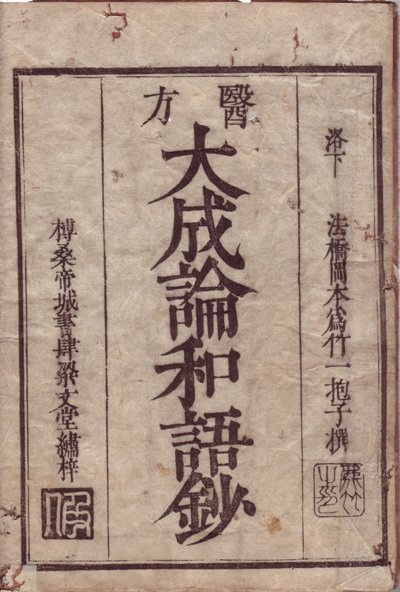 洛下 法橋岡本為竹一抱子撰
醫方
大成論和語鈔
榑桑帝城書肆梁文堂繡梓